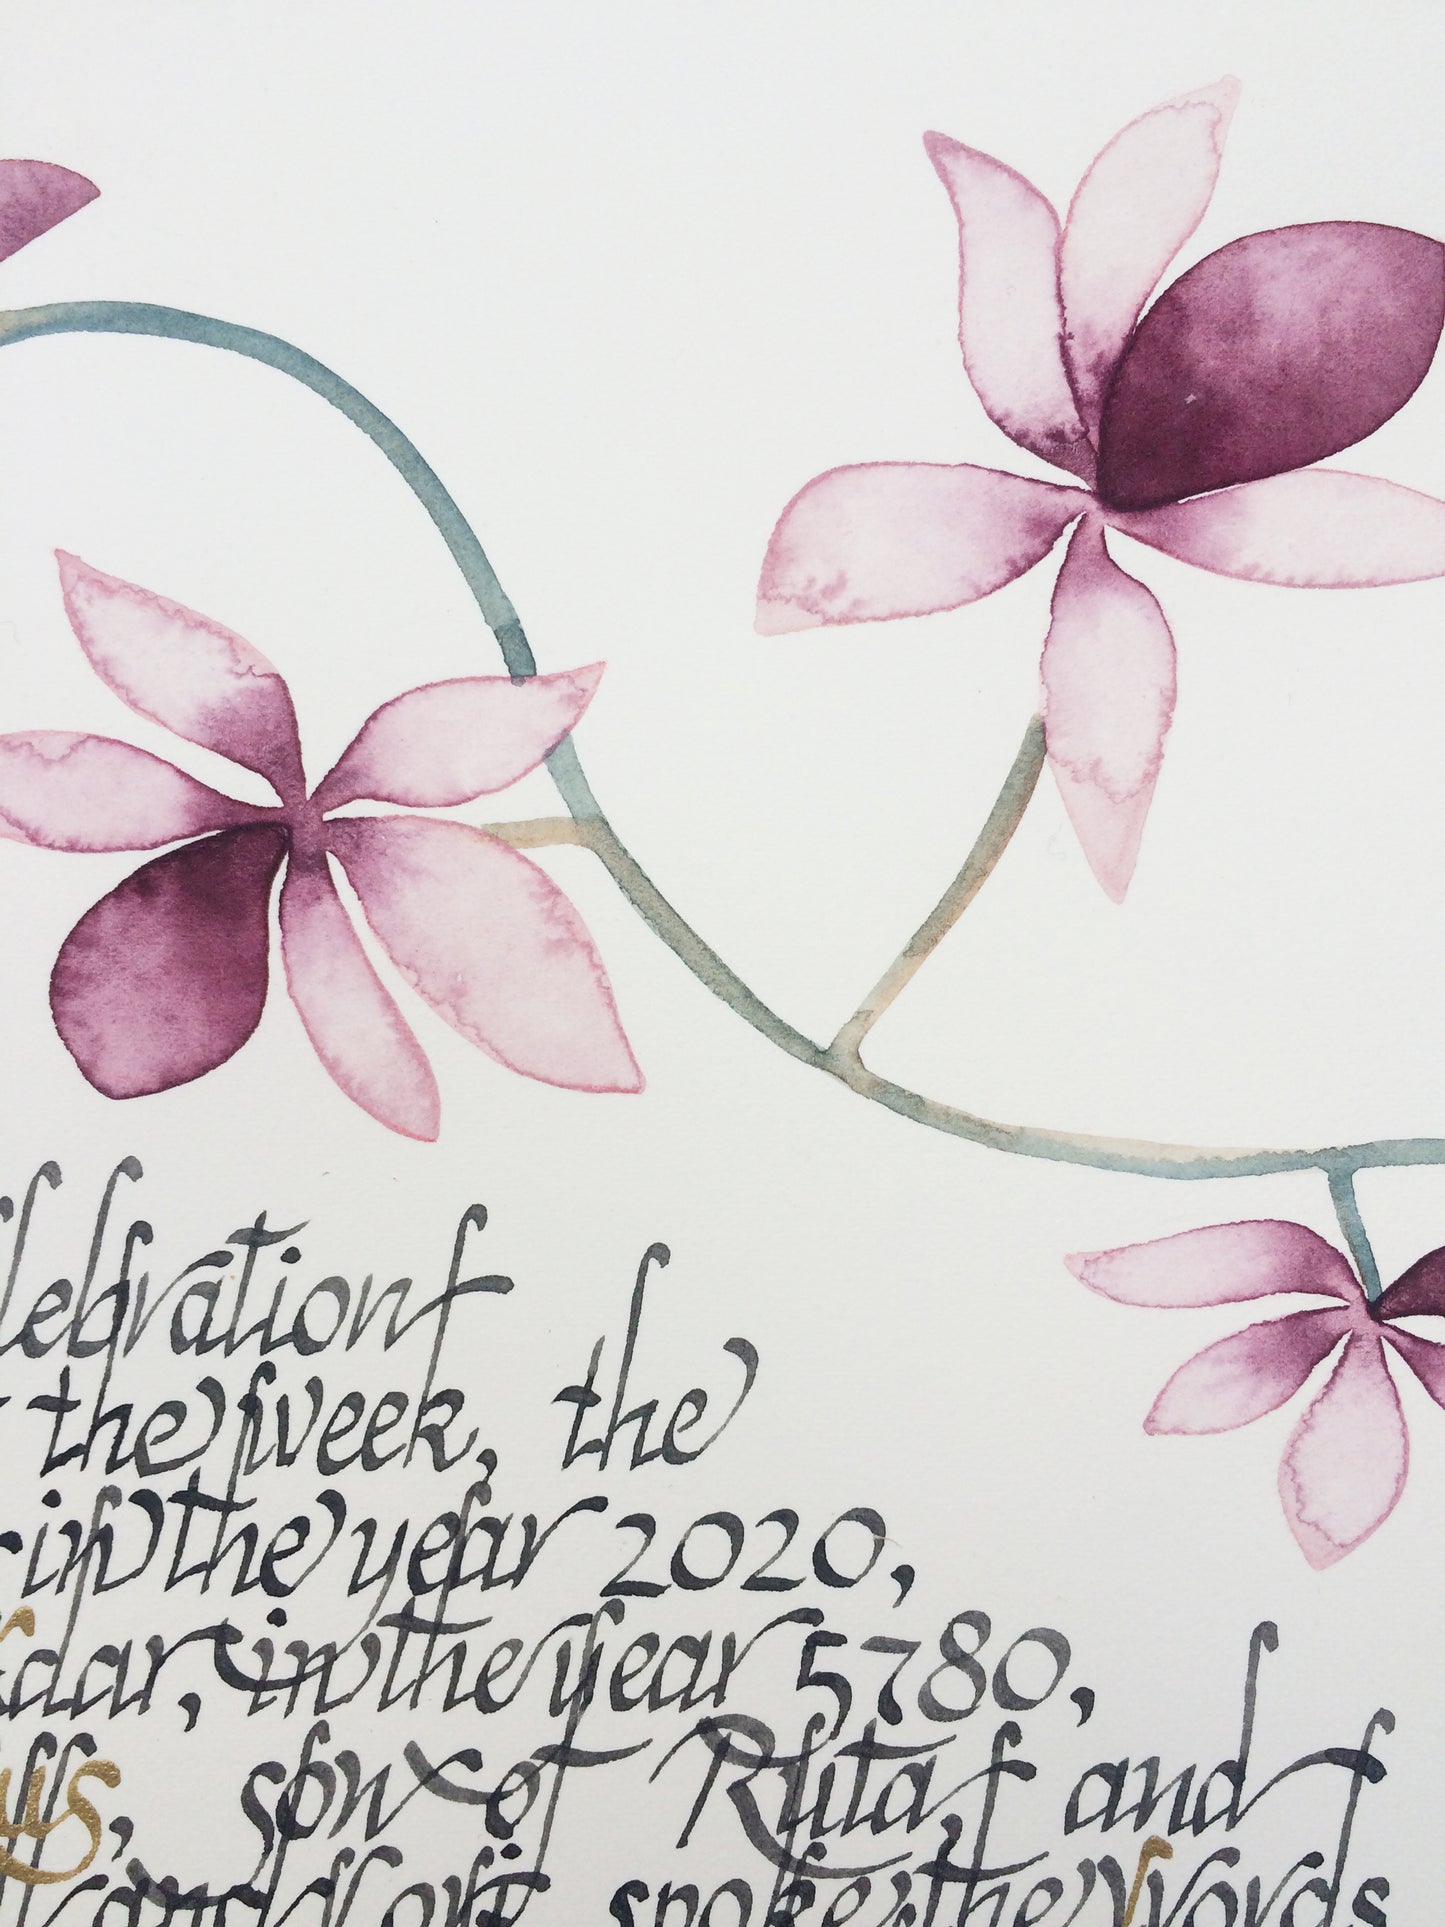 elebration
the week, the
in the year 2020,
dar, in the year 5780,
, son of Ruta, and
spoke the words